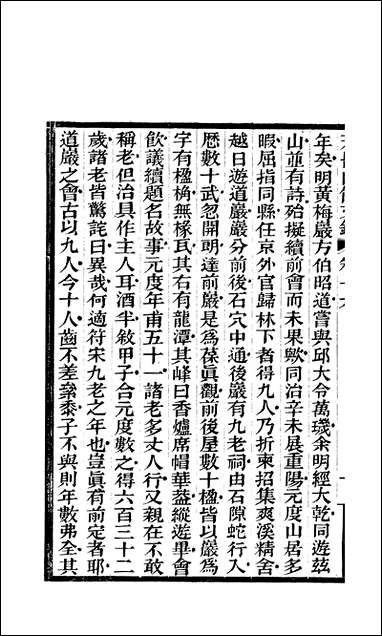 年矣明黃梅嚴方伯昭道嘗與邱大令萬璣余明經大乾同遊茲
山並有詩殆擬續前會而未果歟同治辛未展重陽元度山居多
暇屈指同縣任京外官歸林下者得九人乃折柬招集爽溪精舍
越日遊道巖巖分前後石穴中通後巖有九老祠由石隙蛇行入
歷數十武忽開明達前巖是爲葆眞觀前後屋數十楹皆以巖爲
字有楹桷無椽瓦其右有龍潭其峰曰香爐席帽華葢縱遊畢會
飮議續題名故事元度年甫五十一諸老多丈人行又親在不敢
稱老但治具作主人耳酒半敘甲子合元度數之得六百三十二
歲諸老皆驚詫曰異哉何適符宋九老之年也豈眞有前定者耶
道巖之會古以九人今十人齒不差絫黍子不與則年數弗全其